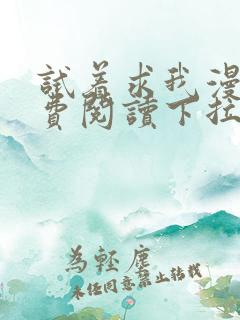 試着求我漫
費閱讀下拉
為輕塵
未经同意禁止转载